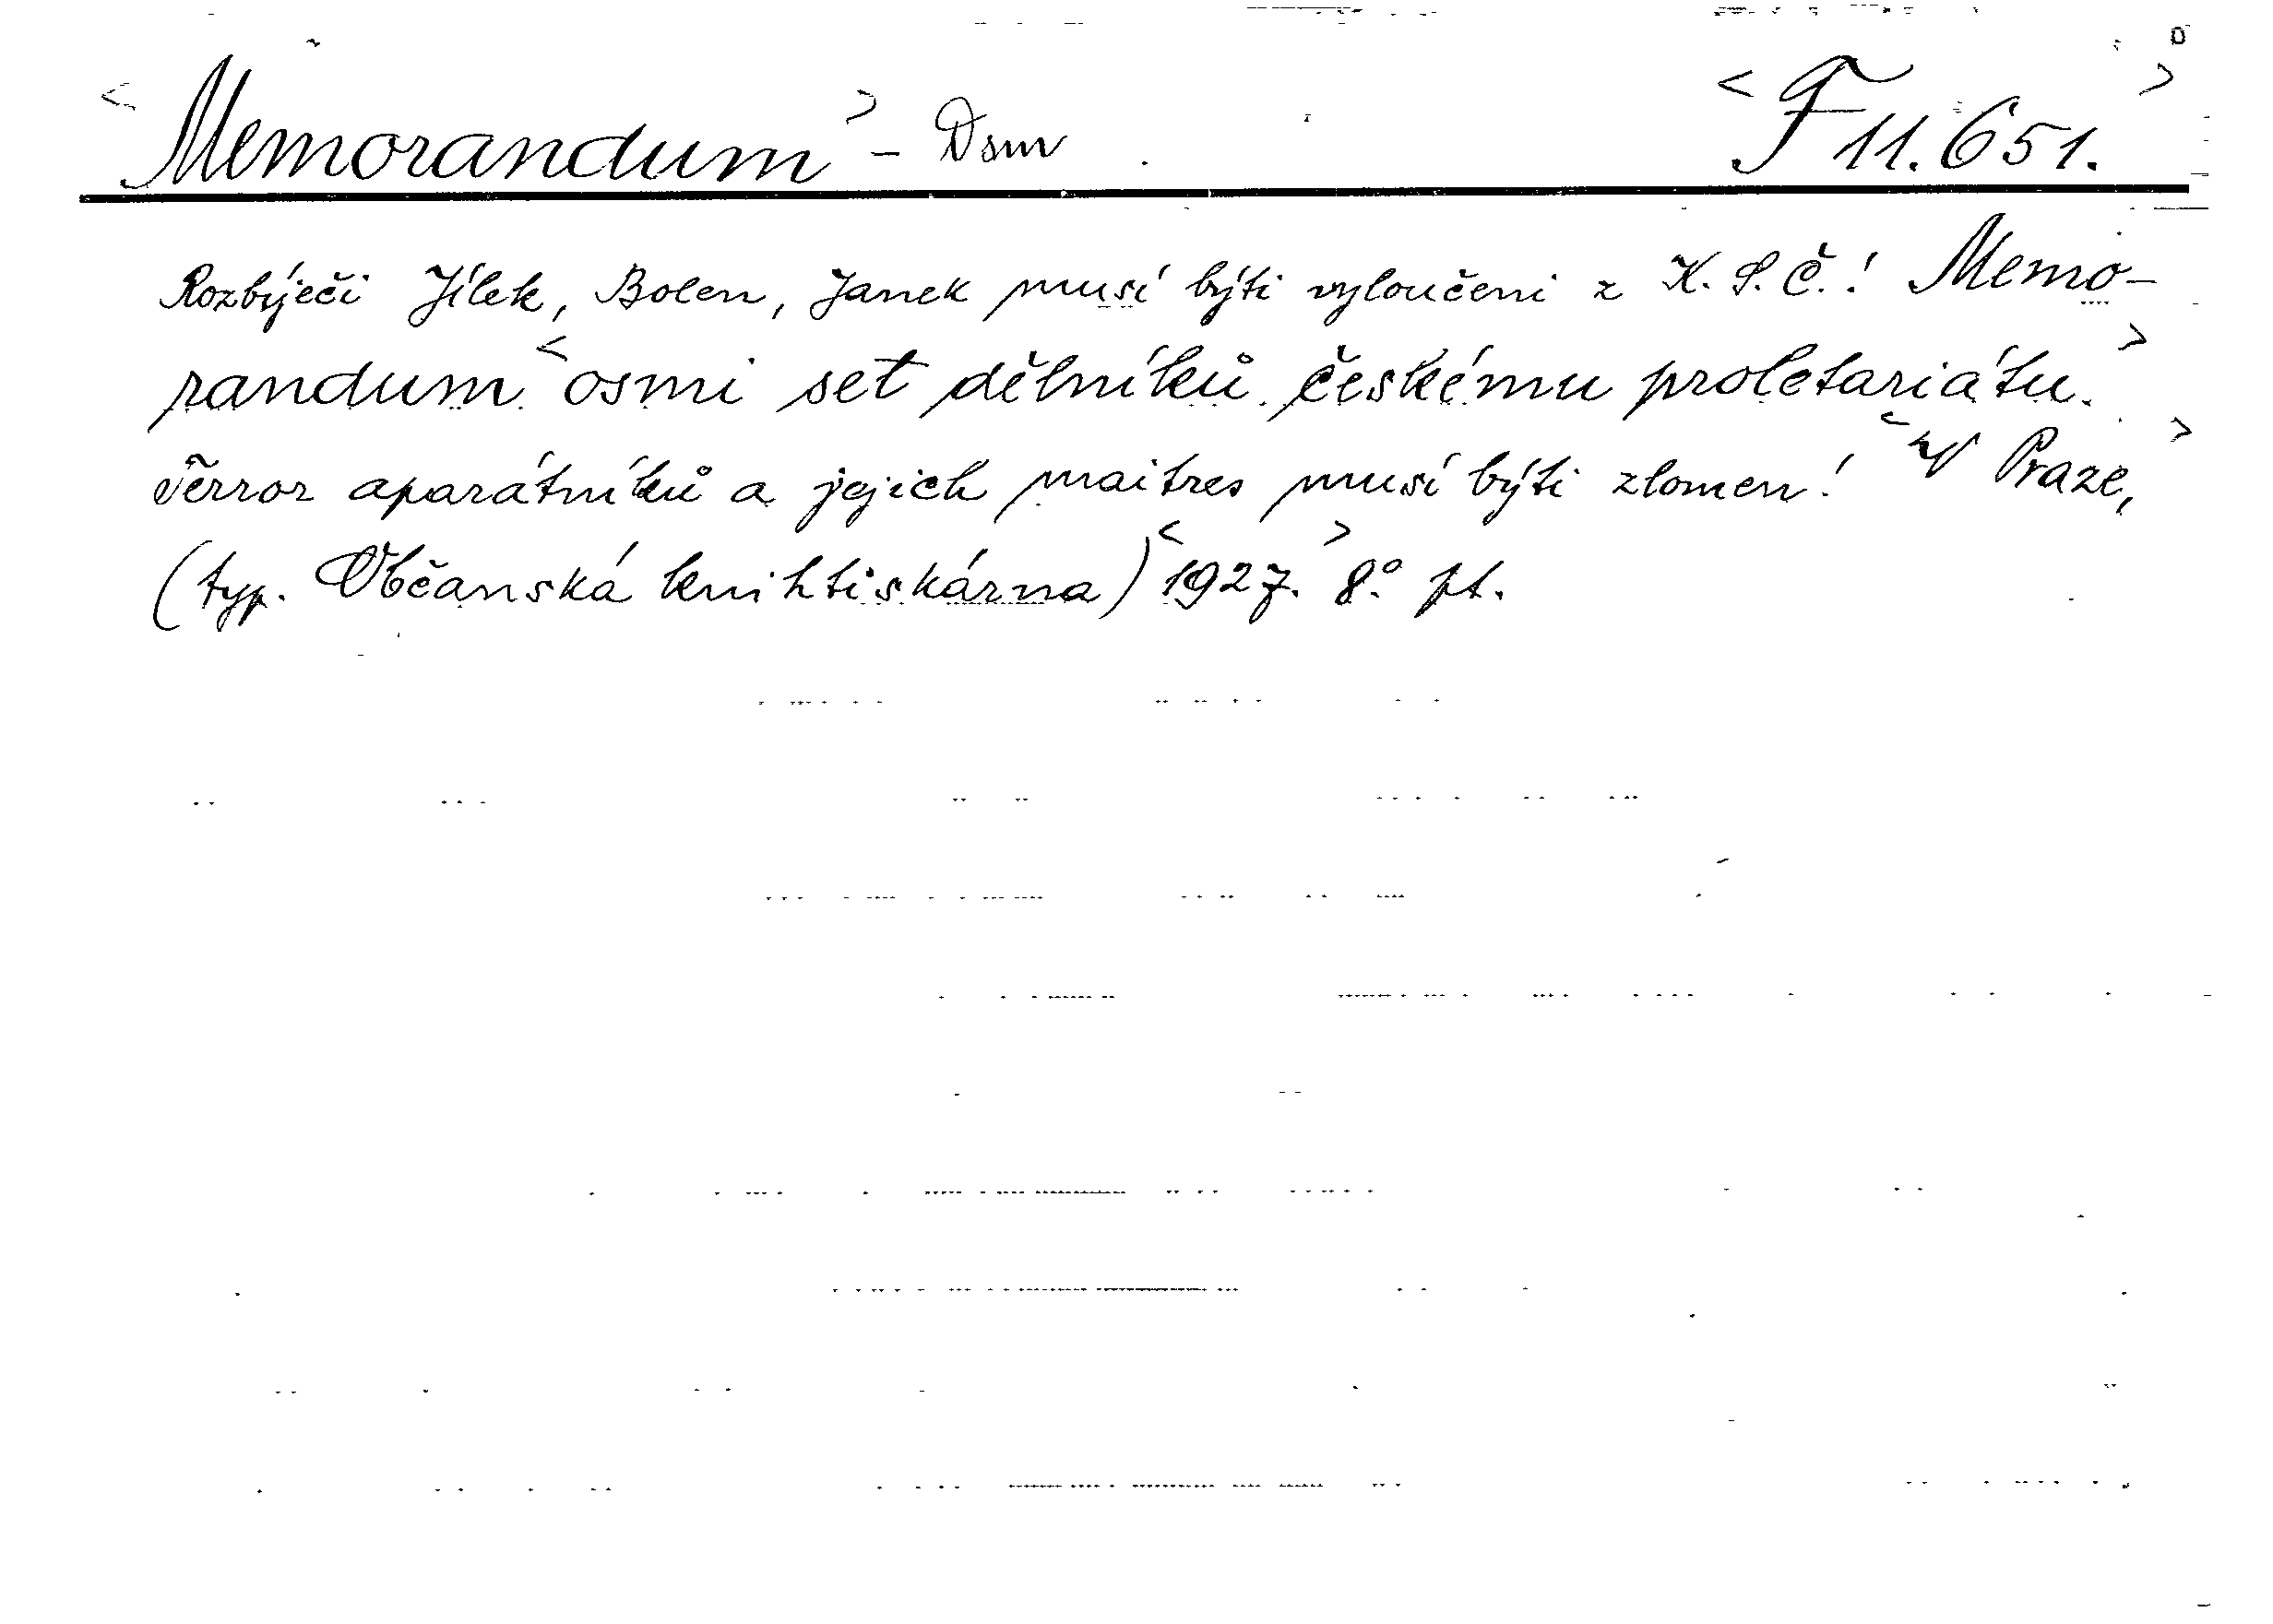 <Memorandum> - Dsm <F 11.651.>
Rozbíječi Jílek, Bolen, Janek musí býti vyloučeni z K. S. Č.! Memo-
randum <osmi set dělníků českému proletariátu.>
Terror aparátníků a jejich maitres musí býti zlomen! <V Praze,>
(typ. Občanská knihtiskárna) <1927.> 8.° pt.